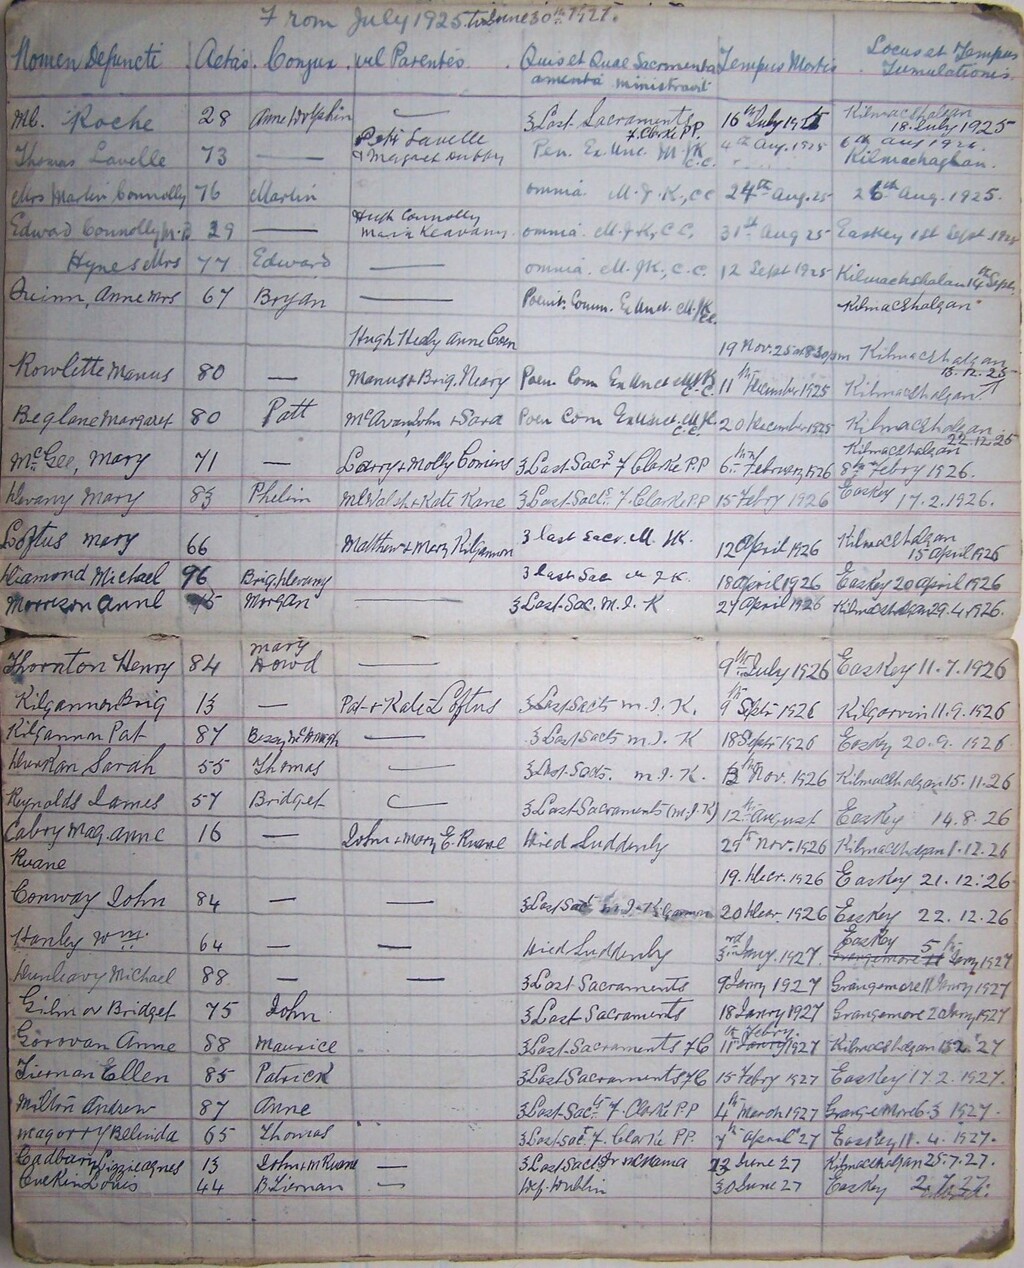 From July 1925 till June 30th 1927.
Nomen Defuncti Aetas. Conjux vel Parentes Quis et Quae Sacramenta ministravit Tempus Mortis Locus et Tempus Tumulationis.
Ml. Roche 28 Anne Dolphin — 3 Last Sacraments F. Clarke P.P. 16th July 1925 Kilmacshalgan 18. July 1925
Thomas Lavelle 73 — Lavelle & Margaret Pen. Ex. Unc. M.J.K. C.C. 4th Aug. 1925 6th Aug 1925. Kilmacshalgan.
Mrs Martin Connolly 76 Martin omnia. M. J. K., CC 24th Aug. 25 26th Aug. 1925.
Edward Connolly 29 — Hugh Connolly Maria Keavany. omnia. M. J. K, C.C. 31st Aug 25 Easkey 1st Sept 1925
Hynes Mrs 77 Edward — omnia. M. J. K., C.C. 12 Sept 1925 Kilmacshalgan 14th Sept.
Quinn, Anne Mrs 67 Bryan — Poenit. Comm. Ex Unct. M. J. K. C.C. Kilmacshalgan
Hugh Healy Anne 19 Nov. 25 Kilmacshalgan
Rowlette Manus 80 — Manus & Brig. Neary Poen. Com Ex Unct M.J.K. C.C. 11th December 1925 13.12.25 Kilmacshalgan
Beglane Margaret 80 Patt John & Sara Poen Com Ex Unct M.J.K. C.C. 20 December 1925 Kilmacshalgan 22.12.25
McGee, Mary 71 — Larry & Molly 3 Last Sacrs F Clarke P.P 6th February 1926 Kilmacshalgan 8th Febry 1926.
Devany Mary 83 Phelim Ml Walsh & Kate Kane 3 Last Sacts. F. Clarke P.P 15 Febry 1926 Easkey 17.2.1926.
Loftus Mary 66 Matthew & Mary Kilgannon 3 last Sacr. M. J. K. 12 April 1926 Kilmacshalgan 15 April 1926
Diamond Michael 96 Brig. Devany 3 last Sac M J. K. 18 April 1926 Easkey 20 April 1926
Morrison Anne Morgan — 3 Last Sac. M. J. K 27 April 1926 Kilmacshalgan 29.4.1926.
Thornton Henry 84 Mary Howd — 9th July 1926 Easkey 11.7.1926
Kilgannon Brig 13 — Pat & Kate Loftus 3 Last Sacts M. J. K. 9th Sept 1926 Kilgarvin 11.9.1926
Kilgannon Pat 87 — 3 Last Sacts M. J. K 18 Sept 1926 Easkey 20.9.1926
Durkan Sarah 55 Thomas — 3 Last Sacts. M. J. K. 13th Nov. 1926 Kilmacshalgan 15.11.26
Reynolds James 57 Bridget — 3 Last Sacraments (M. J. K) 12th August Easkey 14.8.26
Cabry Mag. Anne 16 — John & Mary E. Ruane Died Suddenly 29th Nov. 1926 Kilmacshalgan 1.12.26
Ruane 19. Decr. 1926 Easkey 21.12.26
Conway John 84 — — 3 Last Sac M. J. Kilgannon 20 Decr. 1926 Easkey 22.12.26
Hanley Wm. 64 — — Died Suddenly 3rd Jany. 1927 Easkey 5th Jany 1927
Dunleavy Michael 88 — — 3 Last Sacraments 9 Janry 1927 Grangemore 11 Janry 1927
Gilmor Bridget 75 John 3 Last Sacraments 18 Janry 1927 Grangemore 20 Janry 1927
Gorovan Anne 88 Maurice 3 Last Sacraments F C 11th Febry. 1927 Kilmacshalgan 2.27
Tiernan Ellen 85 Patrick 3 Last Sacraments F C 15 Febry 1927 Easkey 17.2.1927.
Milton Andrew 87 Anne 3 Last Sacts F. Clarke P.P 4th March 1927 Grangemore 6.3 1927.
Magorry Belinda 65 Thomas 3 Last Sac. F. Clarke P.P. April 27 Easkey 11.4.1927.
Cadbury Lizzie Agnes 13 John & M Ruane — 3 Last Sacts Fr McNama 23 June 27 Kilmacshalgan 25.7.27.
Louis 44 B. Tiernan — Dublin 30 June 27 Easkey 2.7.27.